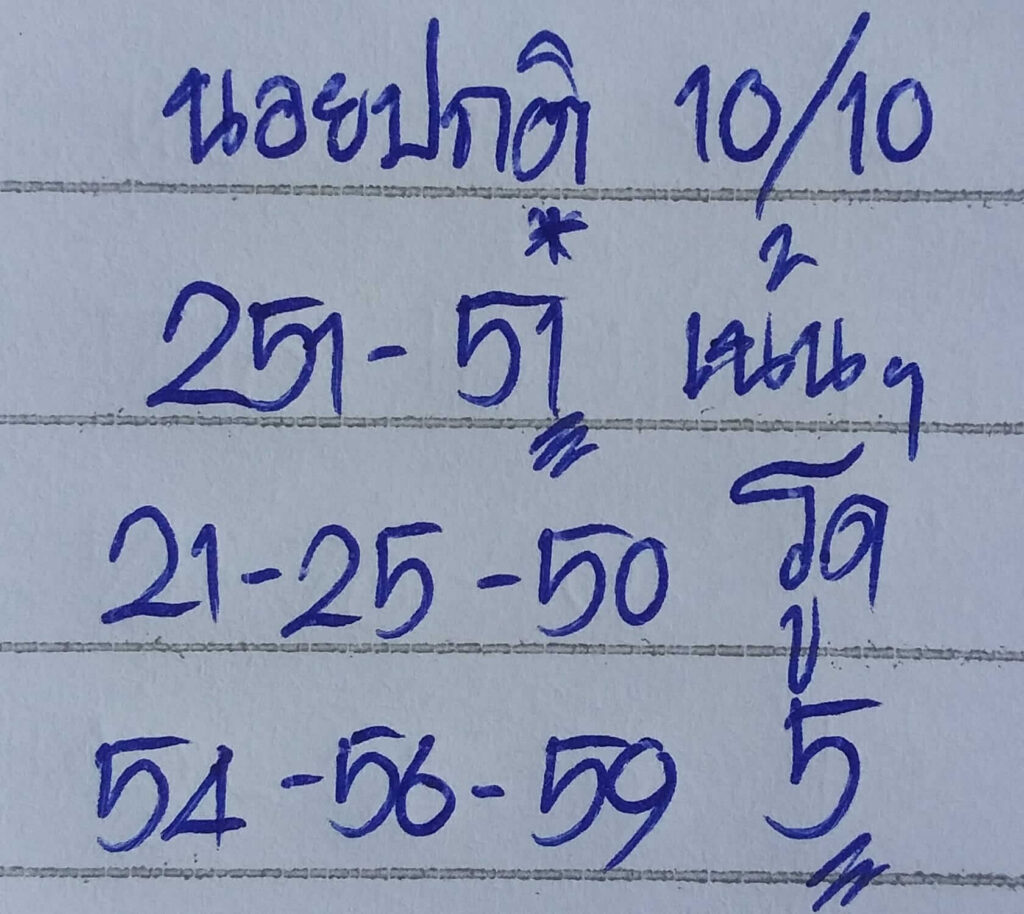 นอยปกติ 10/10
*
251-51 เน้นๆ
21-25-50 รูด
54-56-59 5